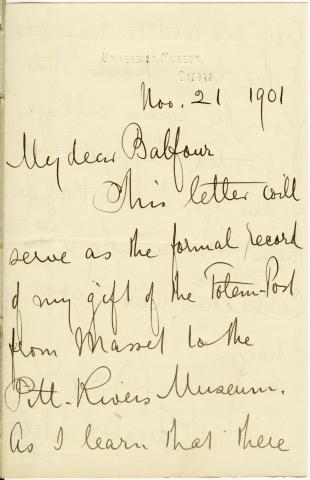 UNIVERSITY MUSEUM,
OXFORD.
Nov. 21 1901
My dear Balfour
This letter will
serve as the formal record
of my gift of the Totem-Post
from Masset to the
Pitt-Rivers Museum.
As I learn that there